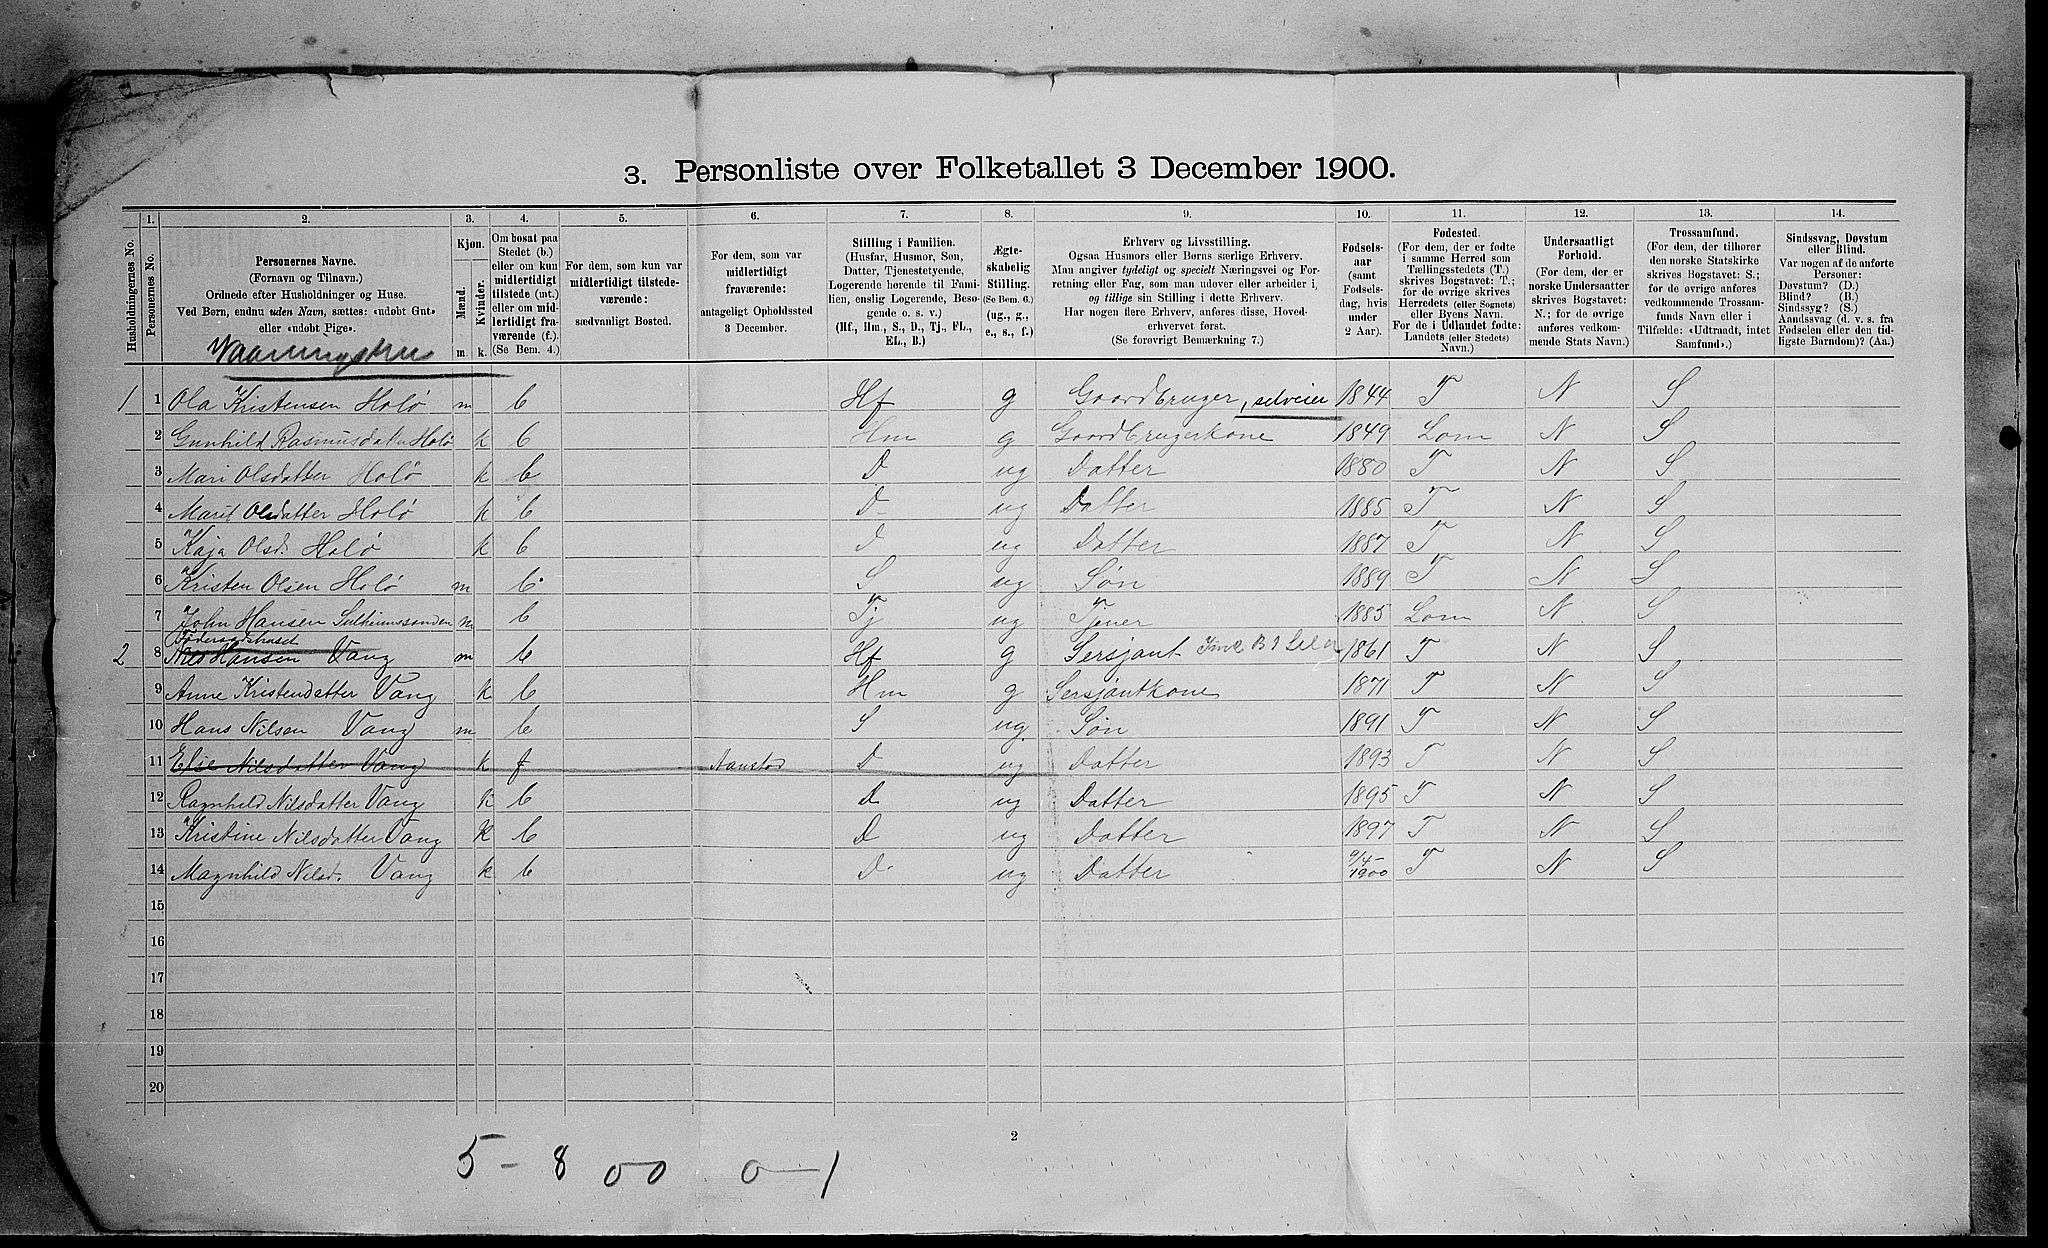 3. Personliste over Folketallet 3 December 1900.
1. 2. 3. 4. 5. 6. 7. 8. 9. 10. 11. 12. 13. 14.
Husholdningernes No.
Personernes No.
Personernes Navne.
(Fornavn og Tilnavn.)
Ordnede efter Husholdninger og Huse.
Ved Børn, endnu uden Navn, sættes: «udøbt Gut»
eller «udøbt Pige».
Kjøn.
Mænd. Kvinder.
m. k.
Om bosat paa
Stedet (b.)
eller om kun
midlertidigt
tilstede (mt.)
eller om mid-
lertidigt fra-
værende (f.).
(Se Bem. 4.)
For dem, som kun var
midlertidigt tilstede-
værende:
sædvanligt Bosted.
For dem, som var
midlertidigt
fraværende:
antageligt Opholdssted
3 December.
Stilling i Familien.
(Husfar, Husmor, Søn,
Datter, Tjenestetyende,
Logerende hørende til Fami-
lien, enslig Logerende, Besø-
gende o. s. v.)
(Hf., Hm., S., D., Tj., FL.,
EL., B.)
Ægte-
skabelig
Stilling.
(Se Bem. 6.)
(ug., g.,
e., s., f.)
Erhverv og Livsstilling.
Ogsaa Husmors eller Børns særlige Erhverv.
Man angiver tydeligt og specielt Næringsvei og For-
retning eller Fag, som man udøver eller arbeider i,
og tillige sin Stilling i dette Erhverv.
Har nogen flere Erhverv, anføres disse, Hoved-
erhvervet først.
(Se forøvrigt Bemærkning 7.)
Fødsels-
aar
(samt
Fødsels-
dag, hvis
under
2 Aar).
Fødested.
(For dem, der er fødte
i samme Herred som
Tællingsstedets (T.)
skrives Bogstavet: T.;
for de øvrige skrives
Herredets (eller Sognets)
eller Byens Navn.
For de i Udlandet fødte:
Landets (eller Stedets)
Navn.)
Undersaatligt
Forhold.
(For dem, der er
norske Undersaatter
skrives Bogstavet:
N.; for de øvrige
anføres vedkom-
mende Stats Navn.)
Trossamfund.
(For dem, der tilhører
den norske Statskirke
skrives Bogstavet: S.;
for de øvrige anføres
vedkommende Trossam-
funds Navn eller i
Tilfælde: «Udtraadt, intet
Samfund».)
Sindssvag, Døvstum
eller Blind.
Var nogen af de anførte
Personer:
Døvstum? (D.)
Blind? (B.)
Sindssyg? (S.)
Aandssvag (d. v. s. fra
Fødselen eller den tid-
ligste Barndom)? (Aa.)
Vaaningshus
1 1 Ola Kristensen Holø m b Hf g Gaardbruger, selveier 1844 T N S
2 Gunhild Rasmusdatter Holø k b Hm g Gaardbrugerkone 1849 Lom N S
3 Mari Olsdatter Holø k b D ug Datter 1880 T N S
4 Marit Olsdatter Holø k b D ug Datter 1885 T N S
5 Kaja Olsd. Holø k b D ug Datter 1887 T N S
6 Kristen Olsen Holø m b S ug Søn 1889 T N S
7 John Hansen Sulheimssanden m b Tj ug Tjener 1885 Lom N S
Føderaadshuset
2 8 Nils Hansen Vang m b Hf g Sersjant 1861 T N S
9 Anne Kristendatter Vang k b Hm g Sersjantkone 1871 T N S
10 Hans Nilsen Vang m b S ug Søn 1891 T N S
11 Else Nilsdatter Vang k f Aanstad D ug Datter 1893 T N S
12 Ragnhild Nilsdatter Vang k b D ug Datter 1895 T N S
13 Kristine Nilsdatter Vang k b D ug Datter 1897 T N S
14 Magnhild Nilsd. Vang k b D ug Datter 9/4-1900 T N S
15
16
17
18
19
20
2
5-8 00 0-1